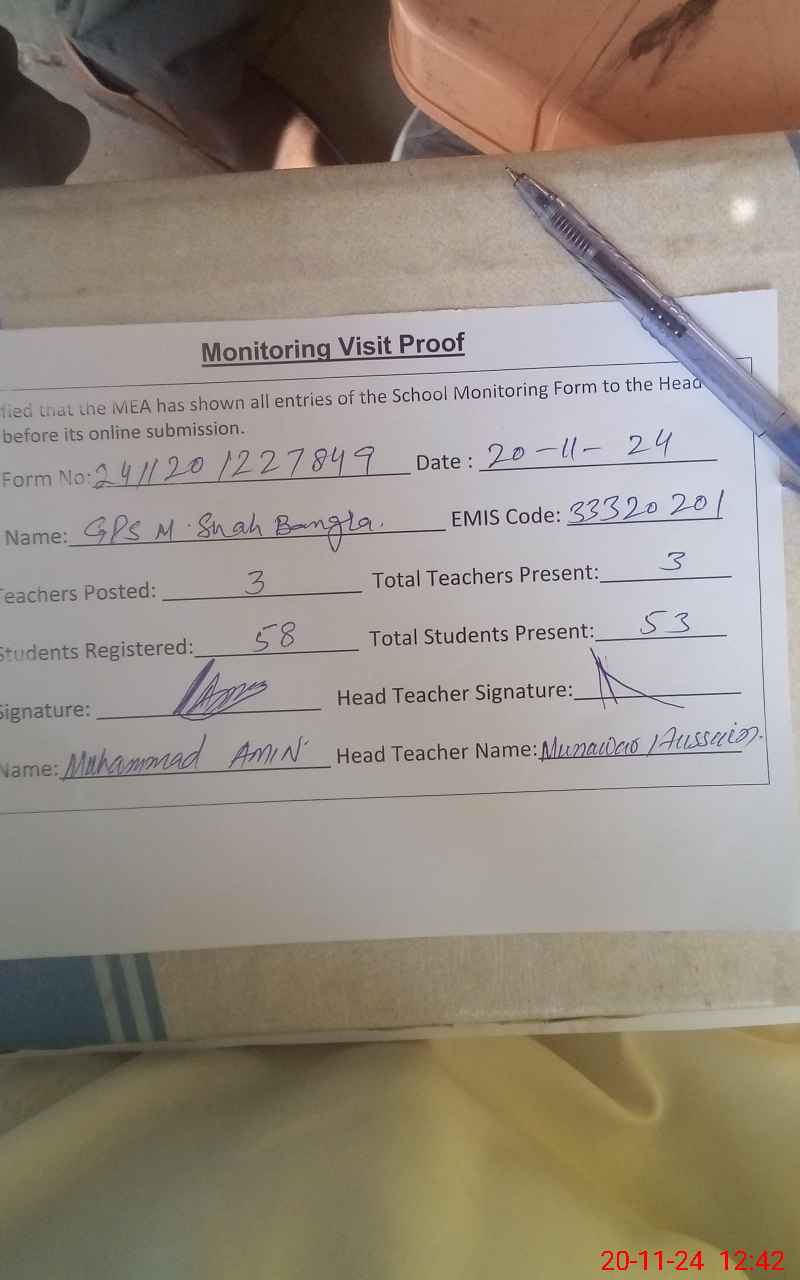 Monitoring Visit Proof
fied that the MEA has shown all entries of the School Monitoring Form to the Head
before its online submission.
Form No: 241120 1227849 Date : 20-11- 24
Name: GPS M. Shah Bangla. EMIS Code: 33320201
Teachers Posted: 3 Total Teachers Present: 3
Students Registered: 58 Total Students Present: 53
Signature: Head Teacher Signature:
Name: Muhammad AMIN Head Teacher Name: Munawar Hussain.
20-11-24 12:42